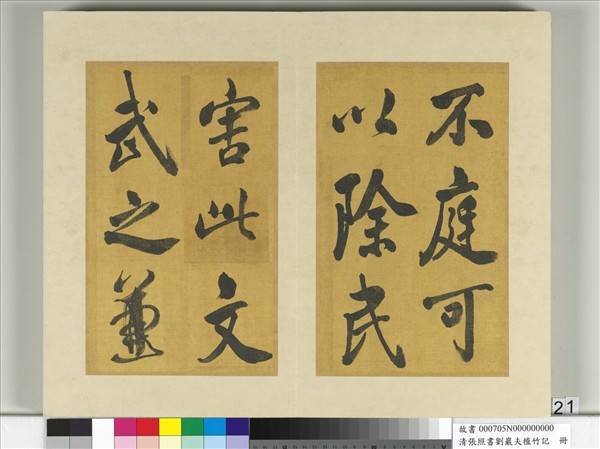 不庭可
以除民
害此文
武之兼
21
故書 000705N000000000
清張照書劉巖夫植竹記 冊